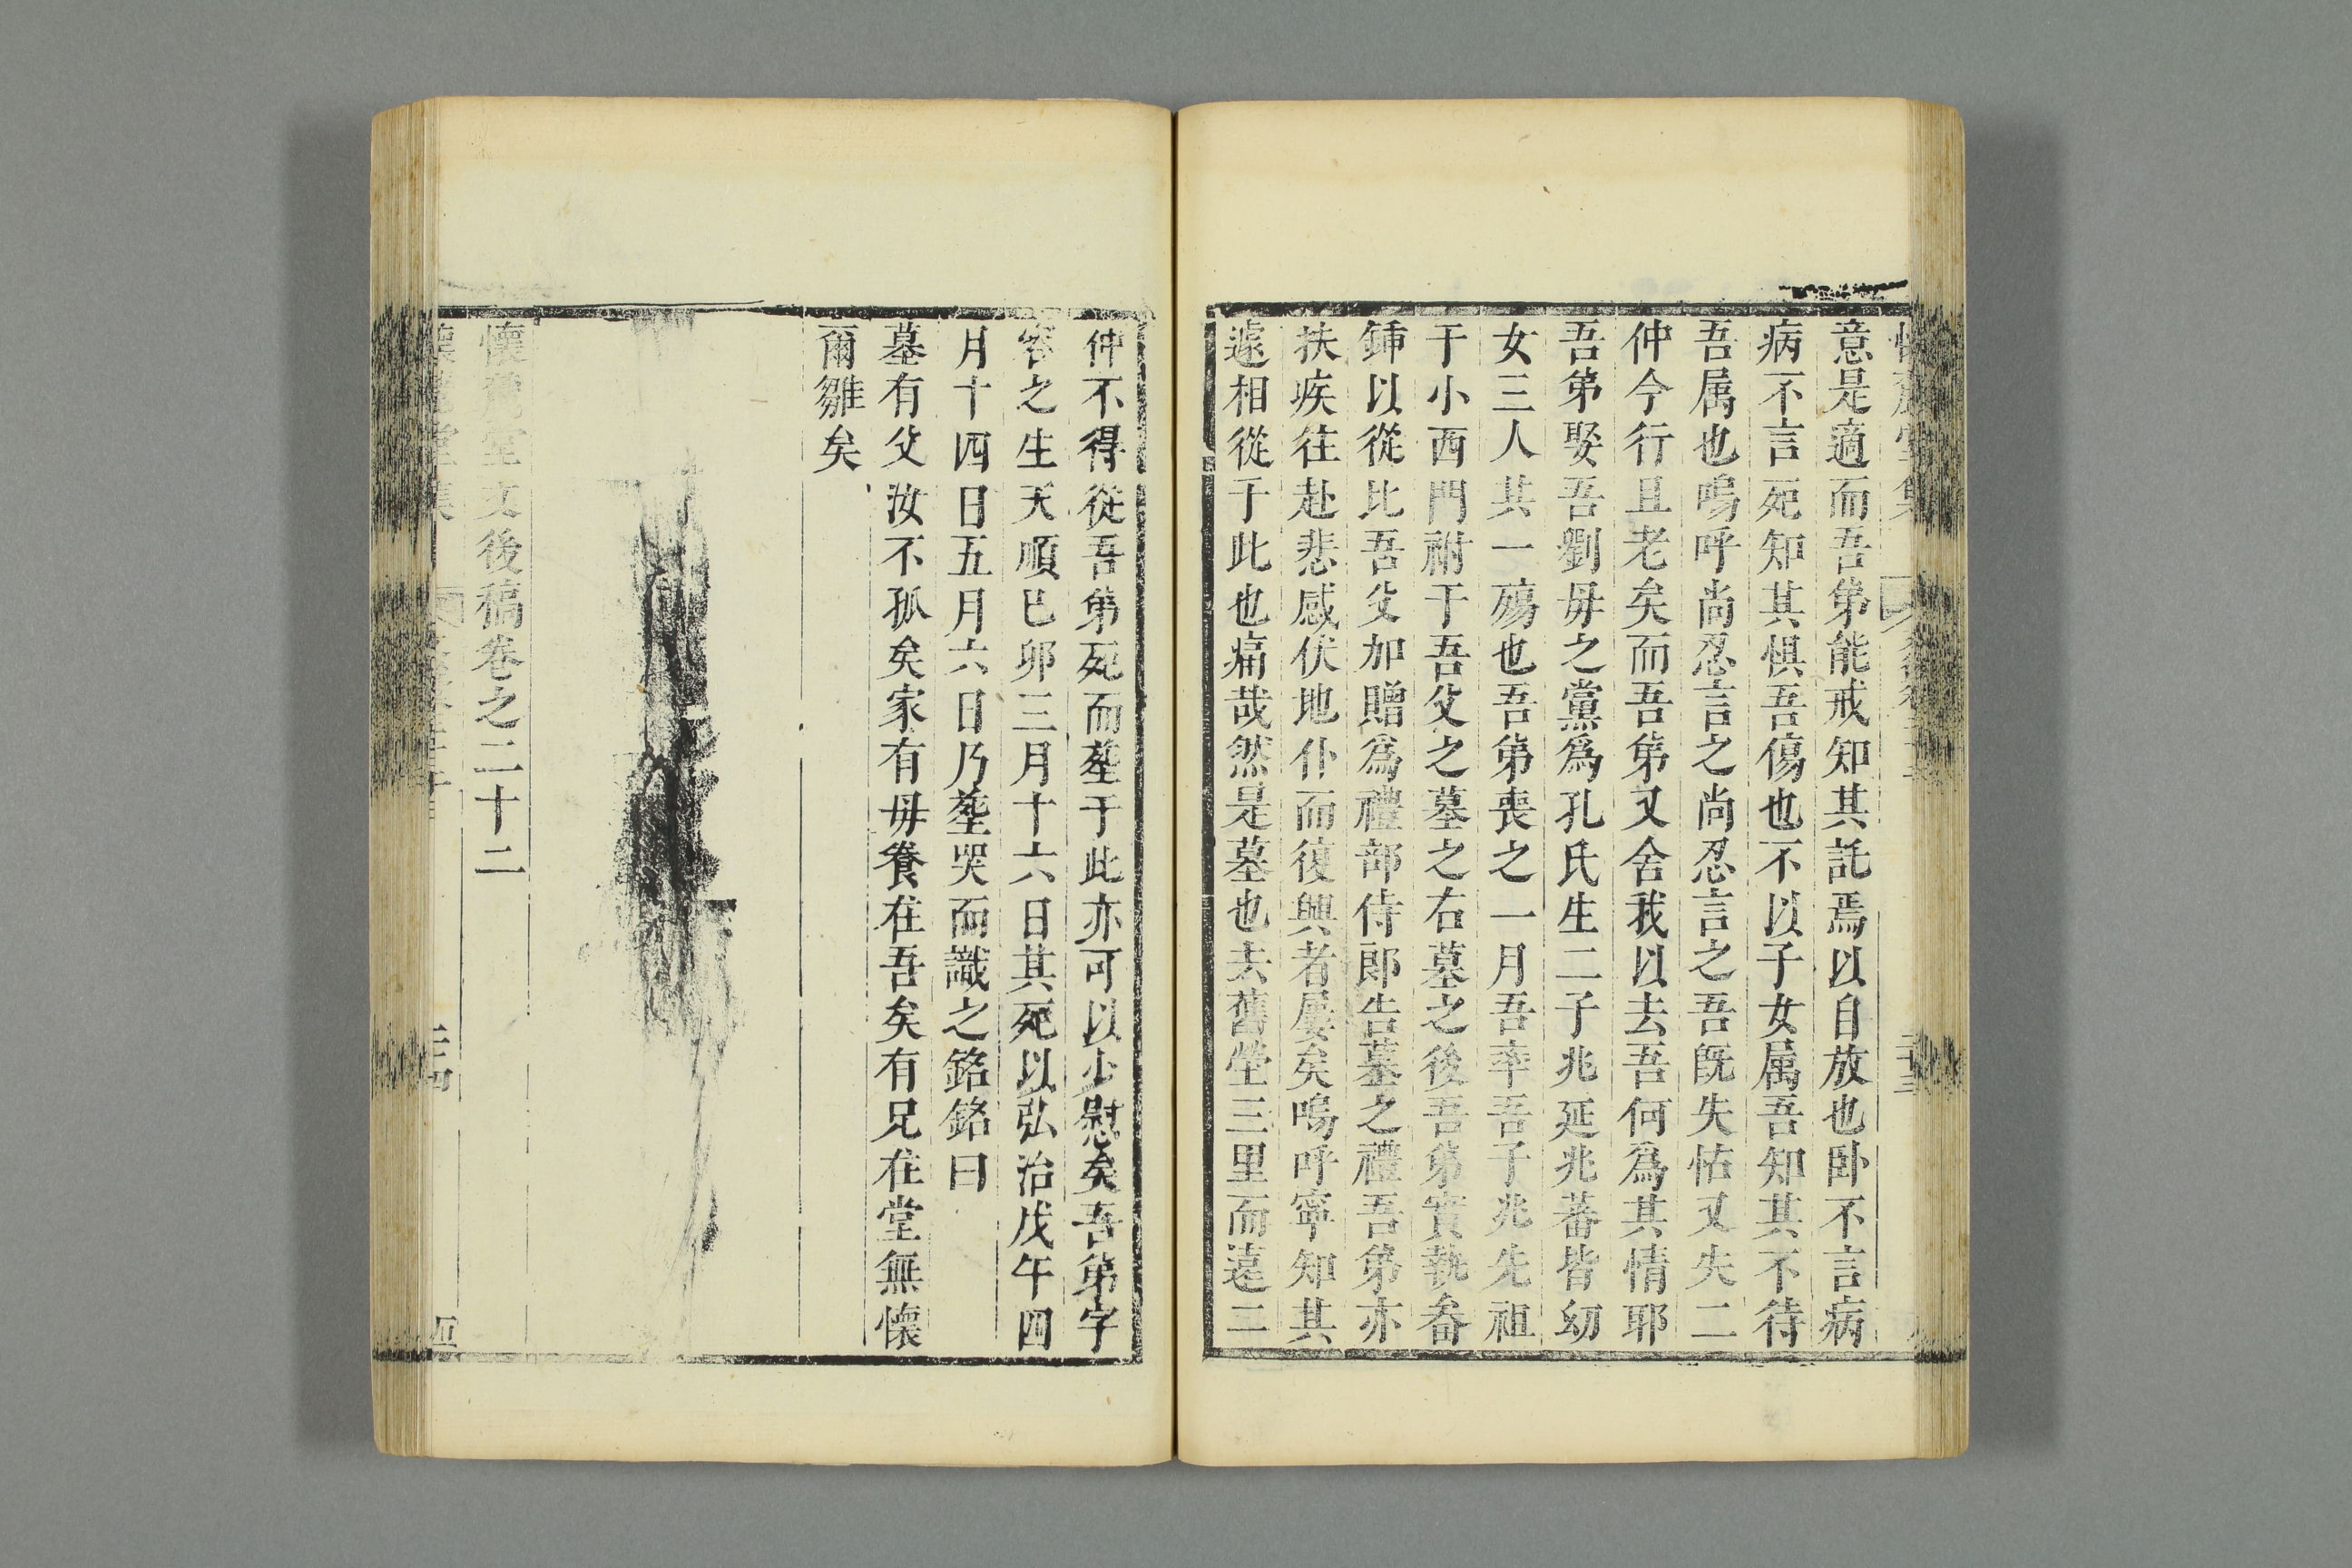 意是適而吾弟能戒知其託焉以自放也卧不言病
病不言死知其惧吾傷也不以子女属吾知其不待
吾属也嗚呼尚忍言之尚忍言之吾既失怙又失二
仲今行且老矣而吾弟又舍我以去吾何爲其情耶
吾弟娶吾劉毋之黨爲孔氏生二子兆延兆蕃皆幼
女三人其一殤也吾弟喪之一月吾率吾子兆先祖
于小西門祔于吾父之墓之右墓之後吾弟實執畚
鍤以從比吾父加贈爲禮部侍郎告墓之禮吾弟亦
扶疾往赴悲感伏地仆而復興者屡矣嗚呼寧知其
遽相從于此也痛哉然是墓也去舊塋三里而遠二
仲不得從吾弟死而塟于此亦可以少慰矣吾弟字
容之生天順巳卯三月十六日其死以弘治戊午四
月十四日五月六日乃塟哭而識之銘銘曰
墓有父汝不孤矣家有毋養在吾矣有兄在堂無懷
爾雛矣
懷麓堂文後稿卷之二十二